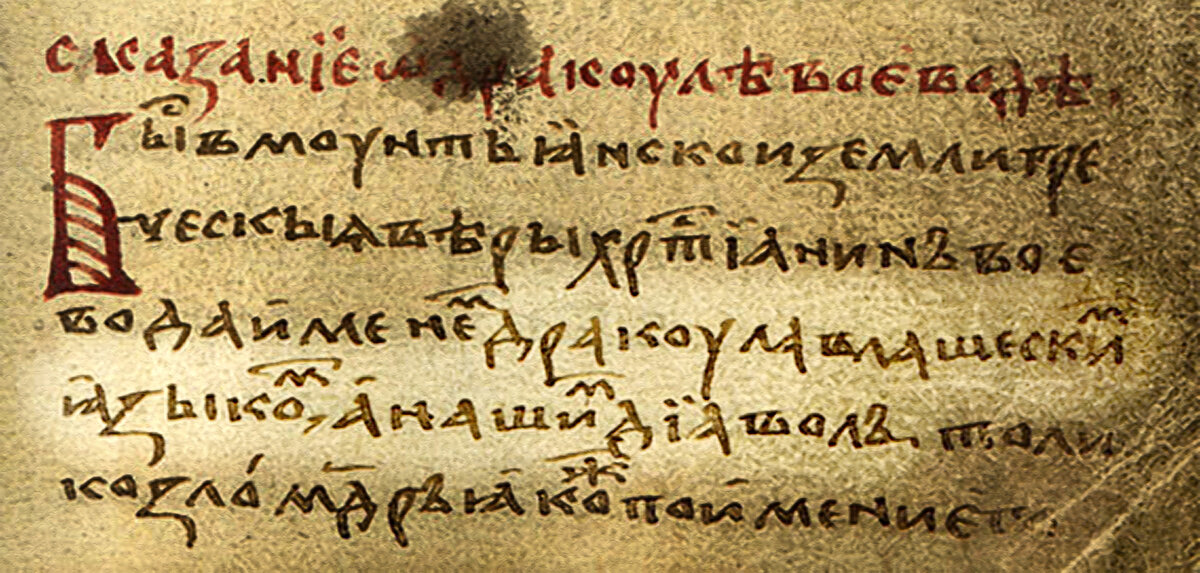 сказанїе ѡ дракоулѣ воєводѣ.
Бы́ въ моунтьѧ́нскои земли гре
ческыѧ вѣры хрⷭ҇тїанинъ воє
вода и́менеⷨ дракоула влашескиⷨ
ѧ́зыкоⷨ, а́ нашиⷨ дїаволъ. толи
ко зло́мⷣръ ꙗ́коⷤ по и́мени є